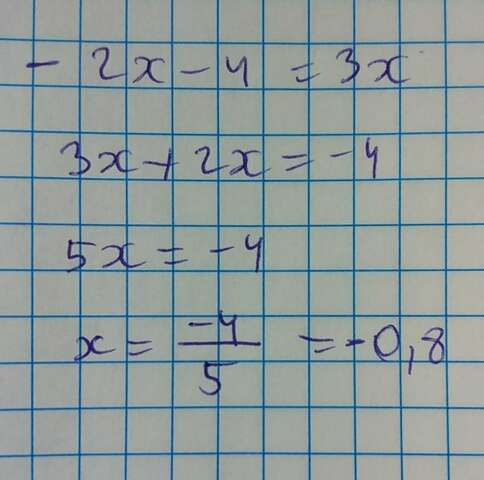 - 2x - 4 = 3x
3x + 2x = -4
5x = -4
x = -4/5 = -0,8